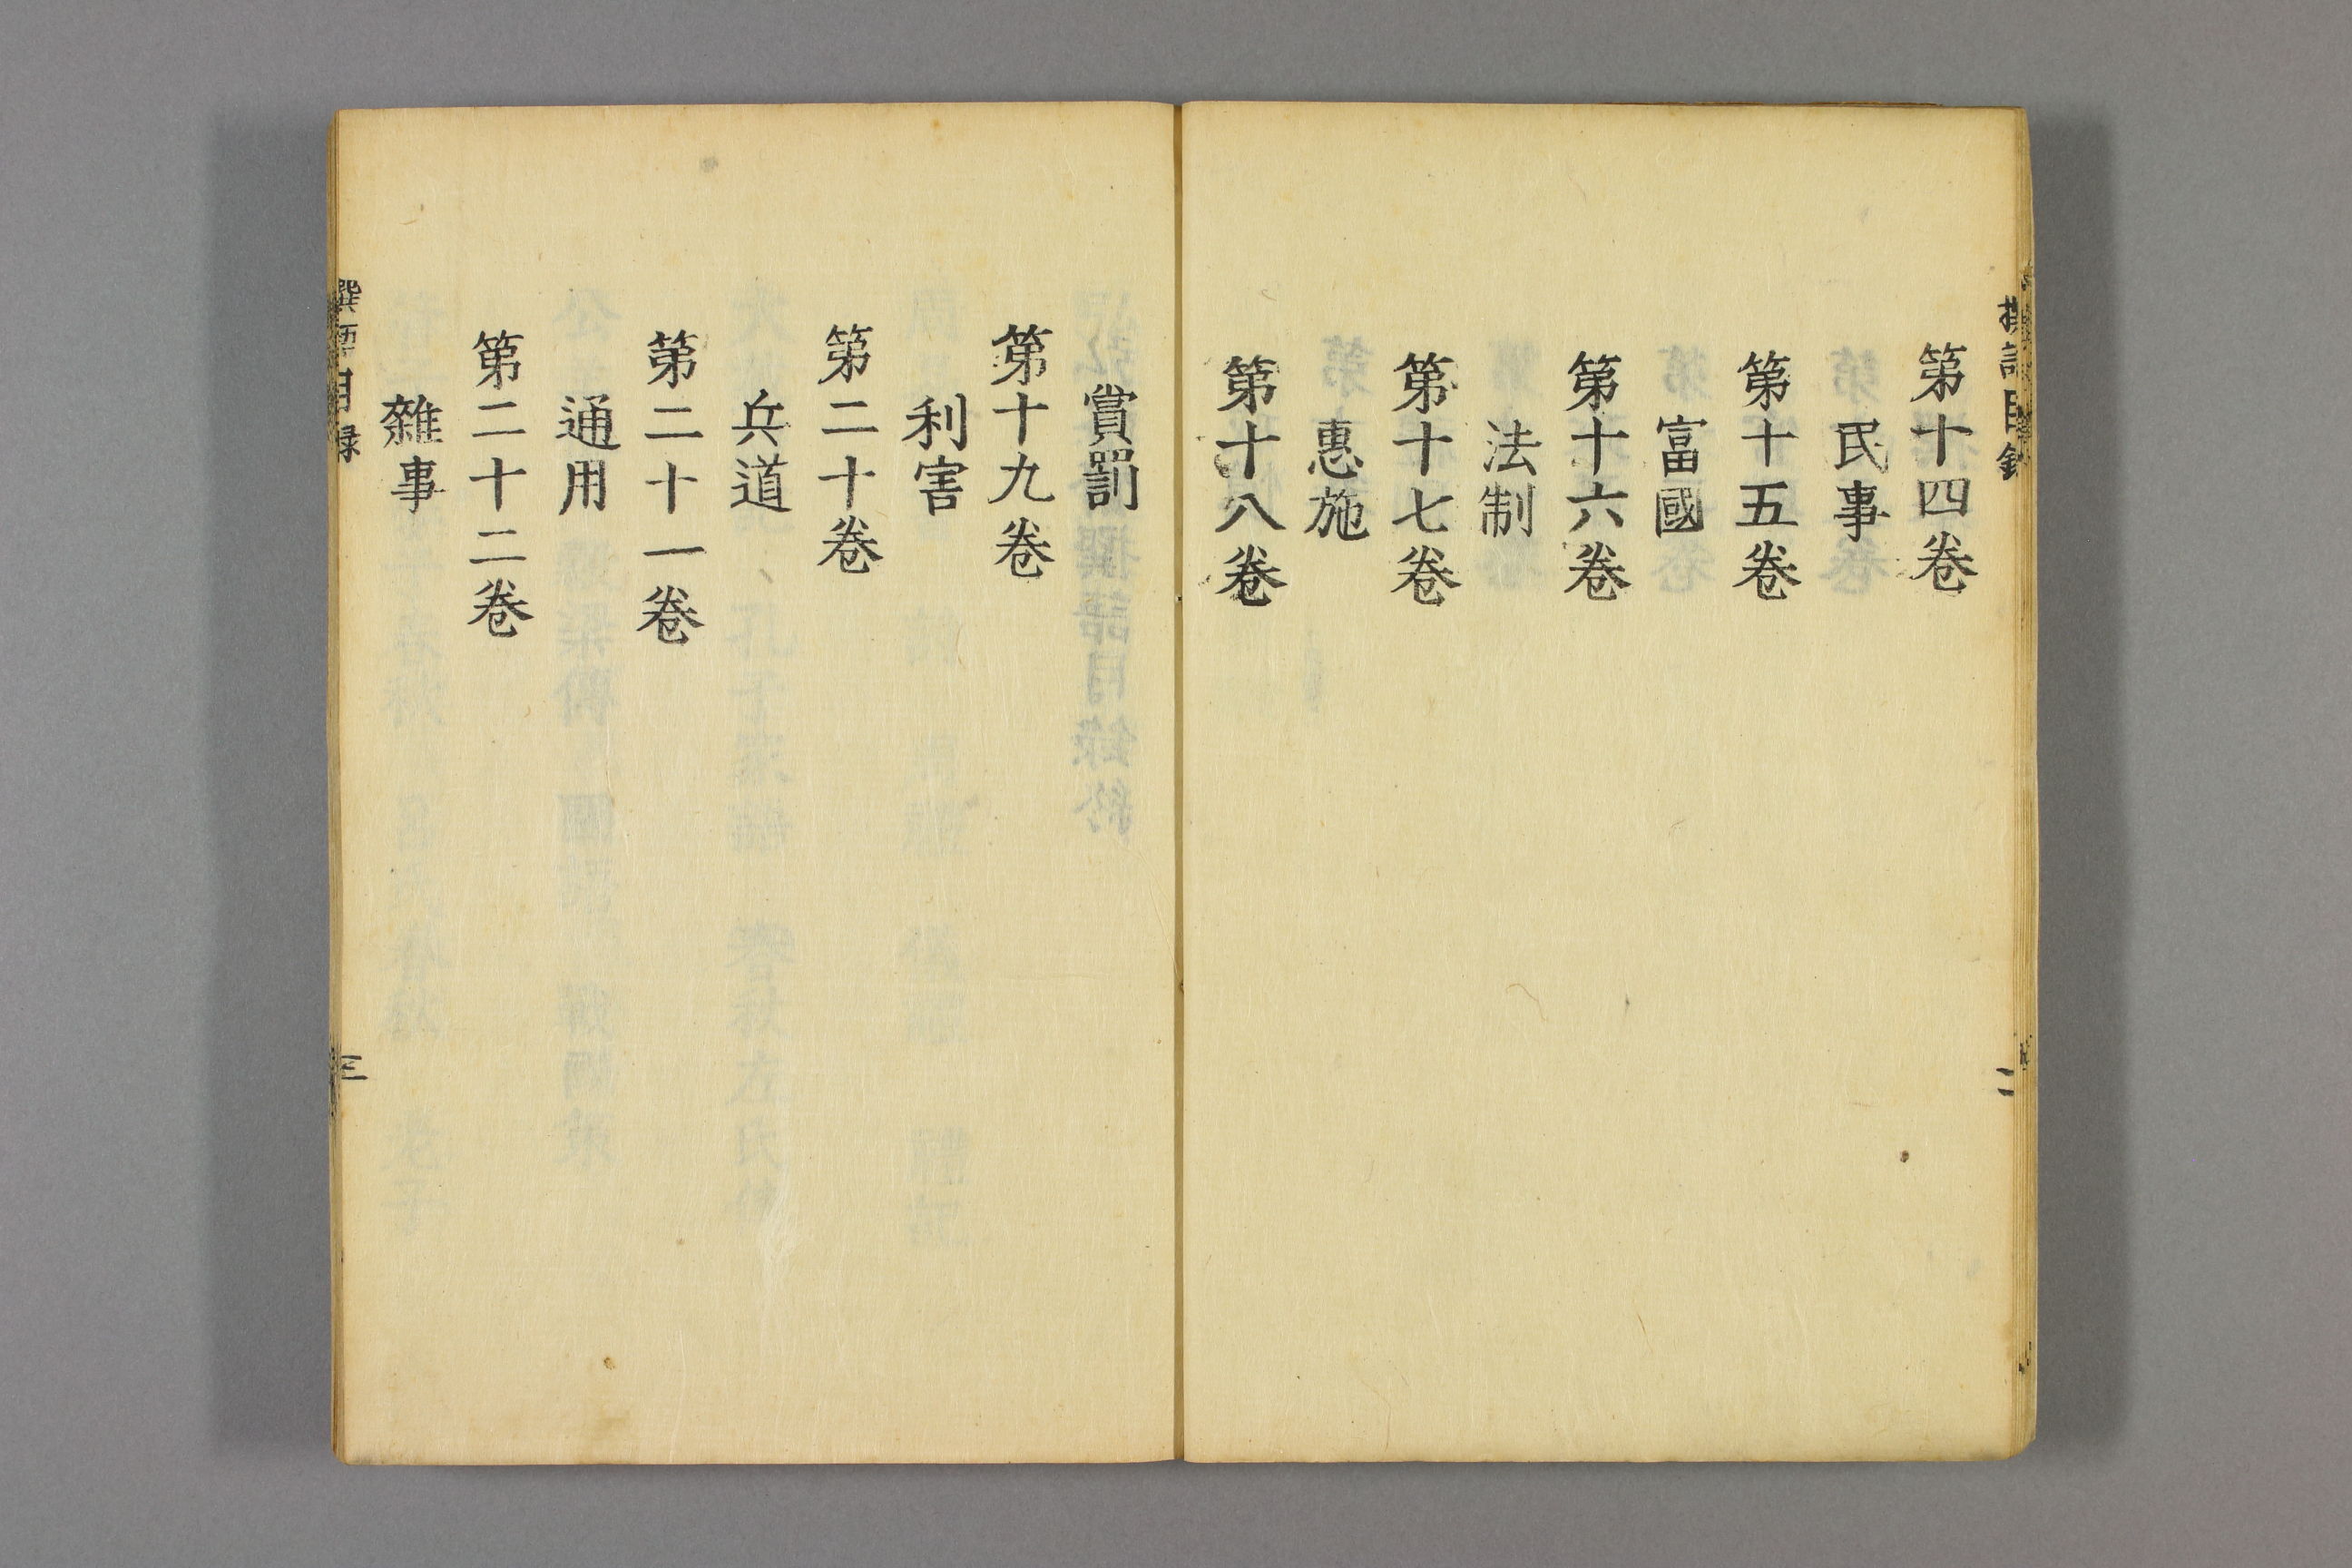 第十四卷
民事
第十五卷
富國
第十六卷
法制
第十七卷
惠施
第十八卷
賞罰
第十九卷
利害
第二十卷
兵道
第二十一卷
通用
第二十二卷
雜事
撰語目録
三